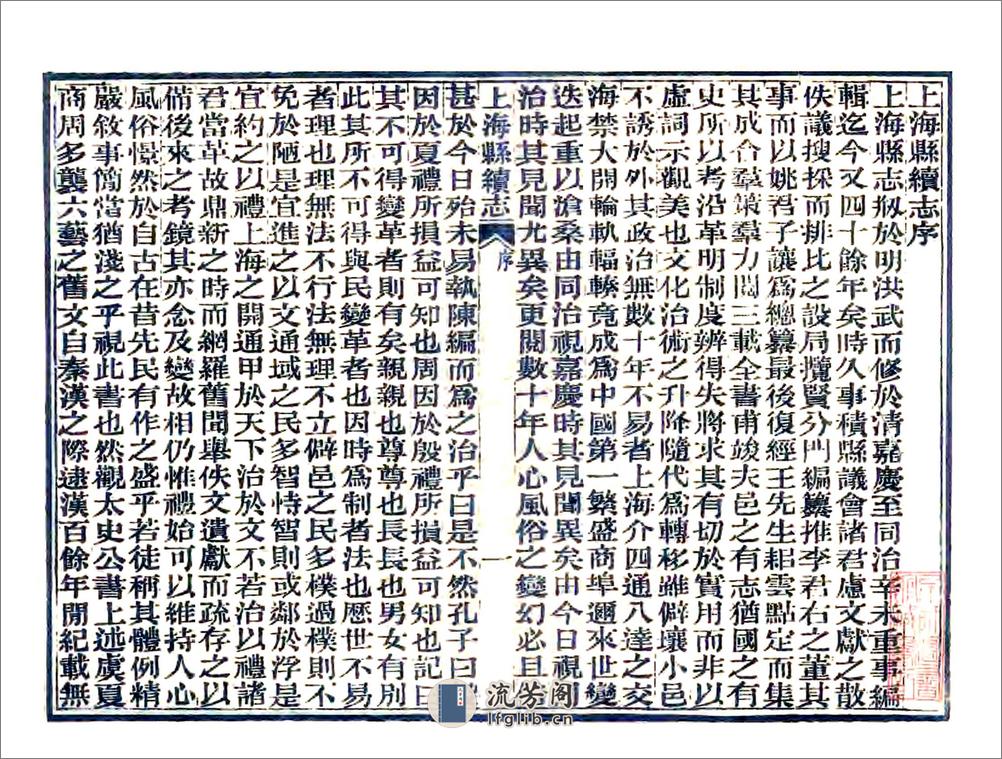 上海縣續志序
上海縣志剏於明洪武而修於清嘉慶至同治辛未重事編
輯迄今又四十餘年矣時久事積縣議會諸君慮文獻之散
佚議搜採而排比之設局攬賢分門編纂推李君右之董其
事而以姚君子讓爲總纂最後復經王先生耜雲點定而集
其成合羣策羣力閱三載全書甫竣夫邑之有志猶國之有
史所以考沿革明制度辨得失將求其有切於實用而非以
虛詞示觀美也文化治術之升降隨代爲轉移雖僻壤小邑
不誘於外其政治無數十年不易者上海介四通八達之交
海禁大開輪軌輻轃竟成爲中國第一繁盛商埠邇來世變
迭起重以滄桑由同治視嘉慶時其見聞異矣由今日視
治時其見聞尤異矣更閱數十年人心風俗之變幻必且
上海縣續志 序 一
甚於今日殆未易執陳編而爲之治乎曰是不然孔子曰
因於夏禮所損益可知也周因於殷禮所損益可知也記曰
其不可得變革者則有矣親親也尊尊也長長也男女有別
此其所不可得與民變革者也因時爲制者法也歷世不易
者理也理無法不行法無理不立僻邑之民多樸過樸則不
免於陋是宜進之以文通域之民多智恃智則或鄰於浮是
宜約之以禮上海之開通甲於天下治於文不若治以禮諸
君當革故鼎新之時而網羅舊聞舉佚文遺獻而疏存之以
備後來之考鏡其亦念及變故相仍惟禮始可以維持人心
風俗憬然於自古在昔先民有作之盛乎若徒稱其體例精
嚴敘事簡當猶淺之乎視此書也然觀太史公書上述虞夏
商周多襲六藝之舊文自秦漢之際逮漢百餘年閒紀載無
流芳阁
lfglib.cn